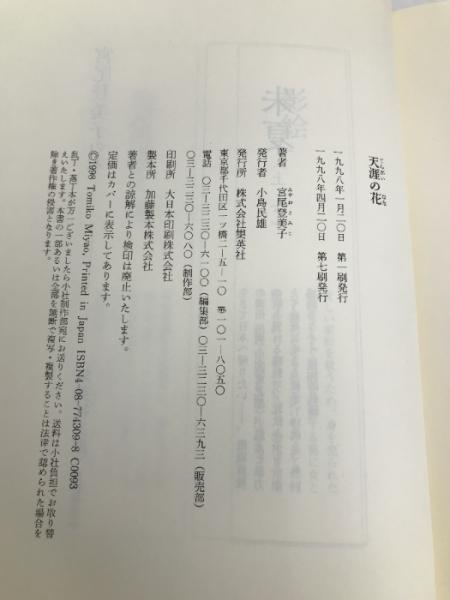 天涯の花
てんがい はな
一九九八年一月二〇日 第一刷発行
一九九八年四月二〇日 第七刷発行
著者 宮尾登美子
みやおとみこ
発行者 小島民雄
発行所 株式会社集英社
東京都千代田区一ツ橋二―五―一〇 〒一〇一―八〇五〇
電話 〇三―三二三〇―六一〇〇(編集部) 〇三―三二三〇―六三九三(販売部)
〇三―三二三〇―六〇八〇(制作部)
印刷所 大日本印刷株式会社
製本所 加藤製本株式会社
著者との諒解により検印は廃止いたします。
定価はカバーに表示してあります。
©1998 Tomiko Miyao, Printed in Japan ISBN4-08-774309-8 C0093
乱丁・落丁本が万一ございましたら小社制作部宛にお送りください。送料は小社負担でお取り替
えいたします。本書の一部あるいは全部を無断で複写・複製することは法律で認められた場合を
除き著作権の侵害となります。